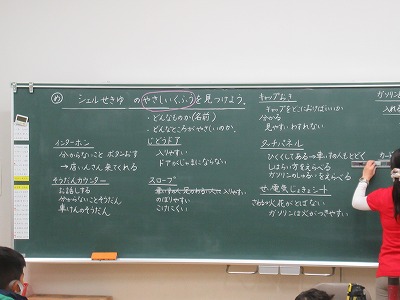 め シェルせきゆ のやさしいくふうを見つけよう。
・どんなものか(名前)
・どんなところがやさしいのか。
インターホン
分からないこと ボタンおす
→店いんさん来てくれる
そうだんカウンター
お話しする
分からないことそうだん
車けんのそうだん
じどうドア
入りやすい
ドアがじゃまにならない
スロープ
車いすの人 足がわるい人 入りやすい
のぼりやすい
こけにくい
キャップおき
キャップをどこにおけばいいか
分かる
見やすい わすれない
タッチパネル
ひくくしてある→車いすの人もとどく
しはらい方をえらべる
ガソリンのしゅるいをえらべる
せい電気じょきょシート
さわる 火花がとばない
ガソリンは火がつきやすい
ガソリン
入れる
カー